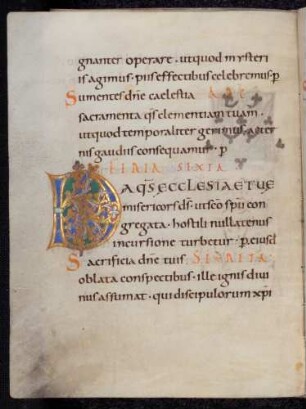 gnanter operare · ut quod mysteri
is agimus · piis effectibus celebremus · p
Sumentes dñe caelestia AD CO
sacramenta q̄s clementiam tuam ·
ut quod temporaliter gerimus · aeter
nis gaudiis consequamur · p
FERIA SEXTA
DA Q̄S ECCLESIAE TUE
misericors d̄s · ut sc̄o sp̄u con
gregata · hostili nullatenus
incursione turbetur · p eiusd
Sacrificia dñe tuis SECRETA
oblata conspectibus · ille ignis divi
nus assumat · qui discipulorum xp̄i